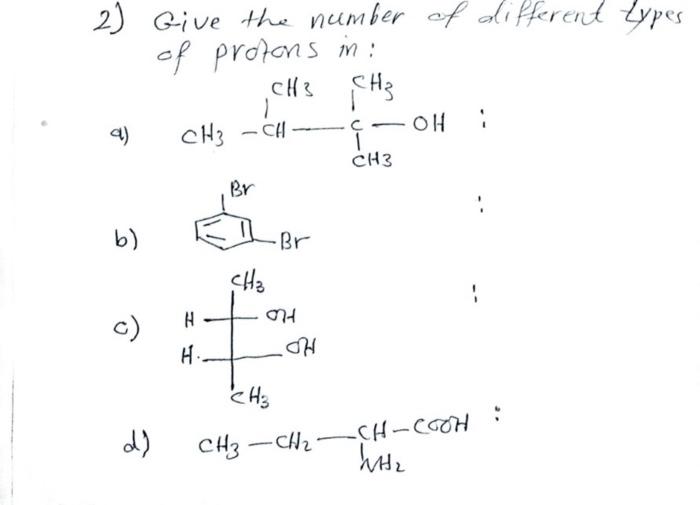 2) Give the number of different types
of protons in :
CH3 CH3
a) CH3 - CH - C - OH :
CH3
Br
:
b) Br
CH3
:
c) H OH
H OH
CH3
d) CH3 - CH2 - CH - COOH :
NH2